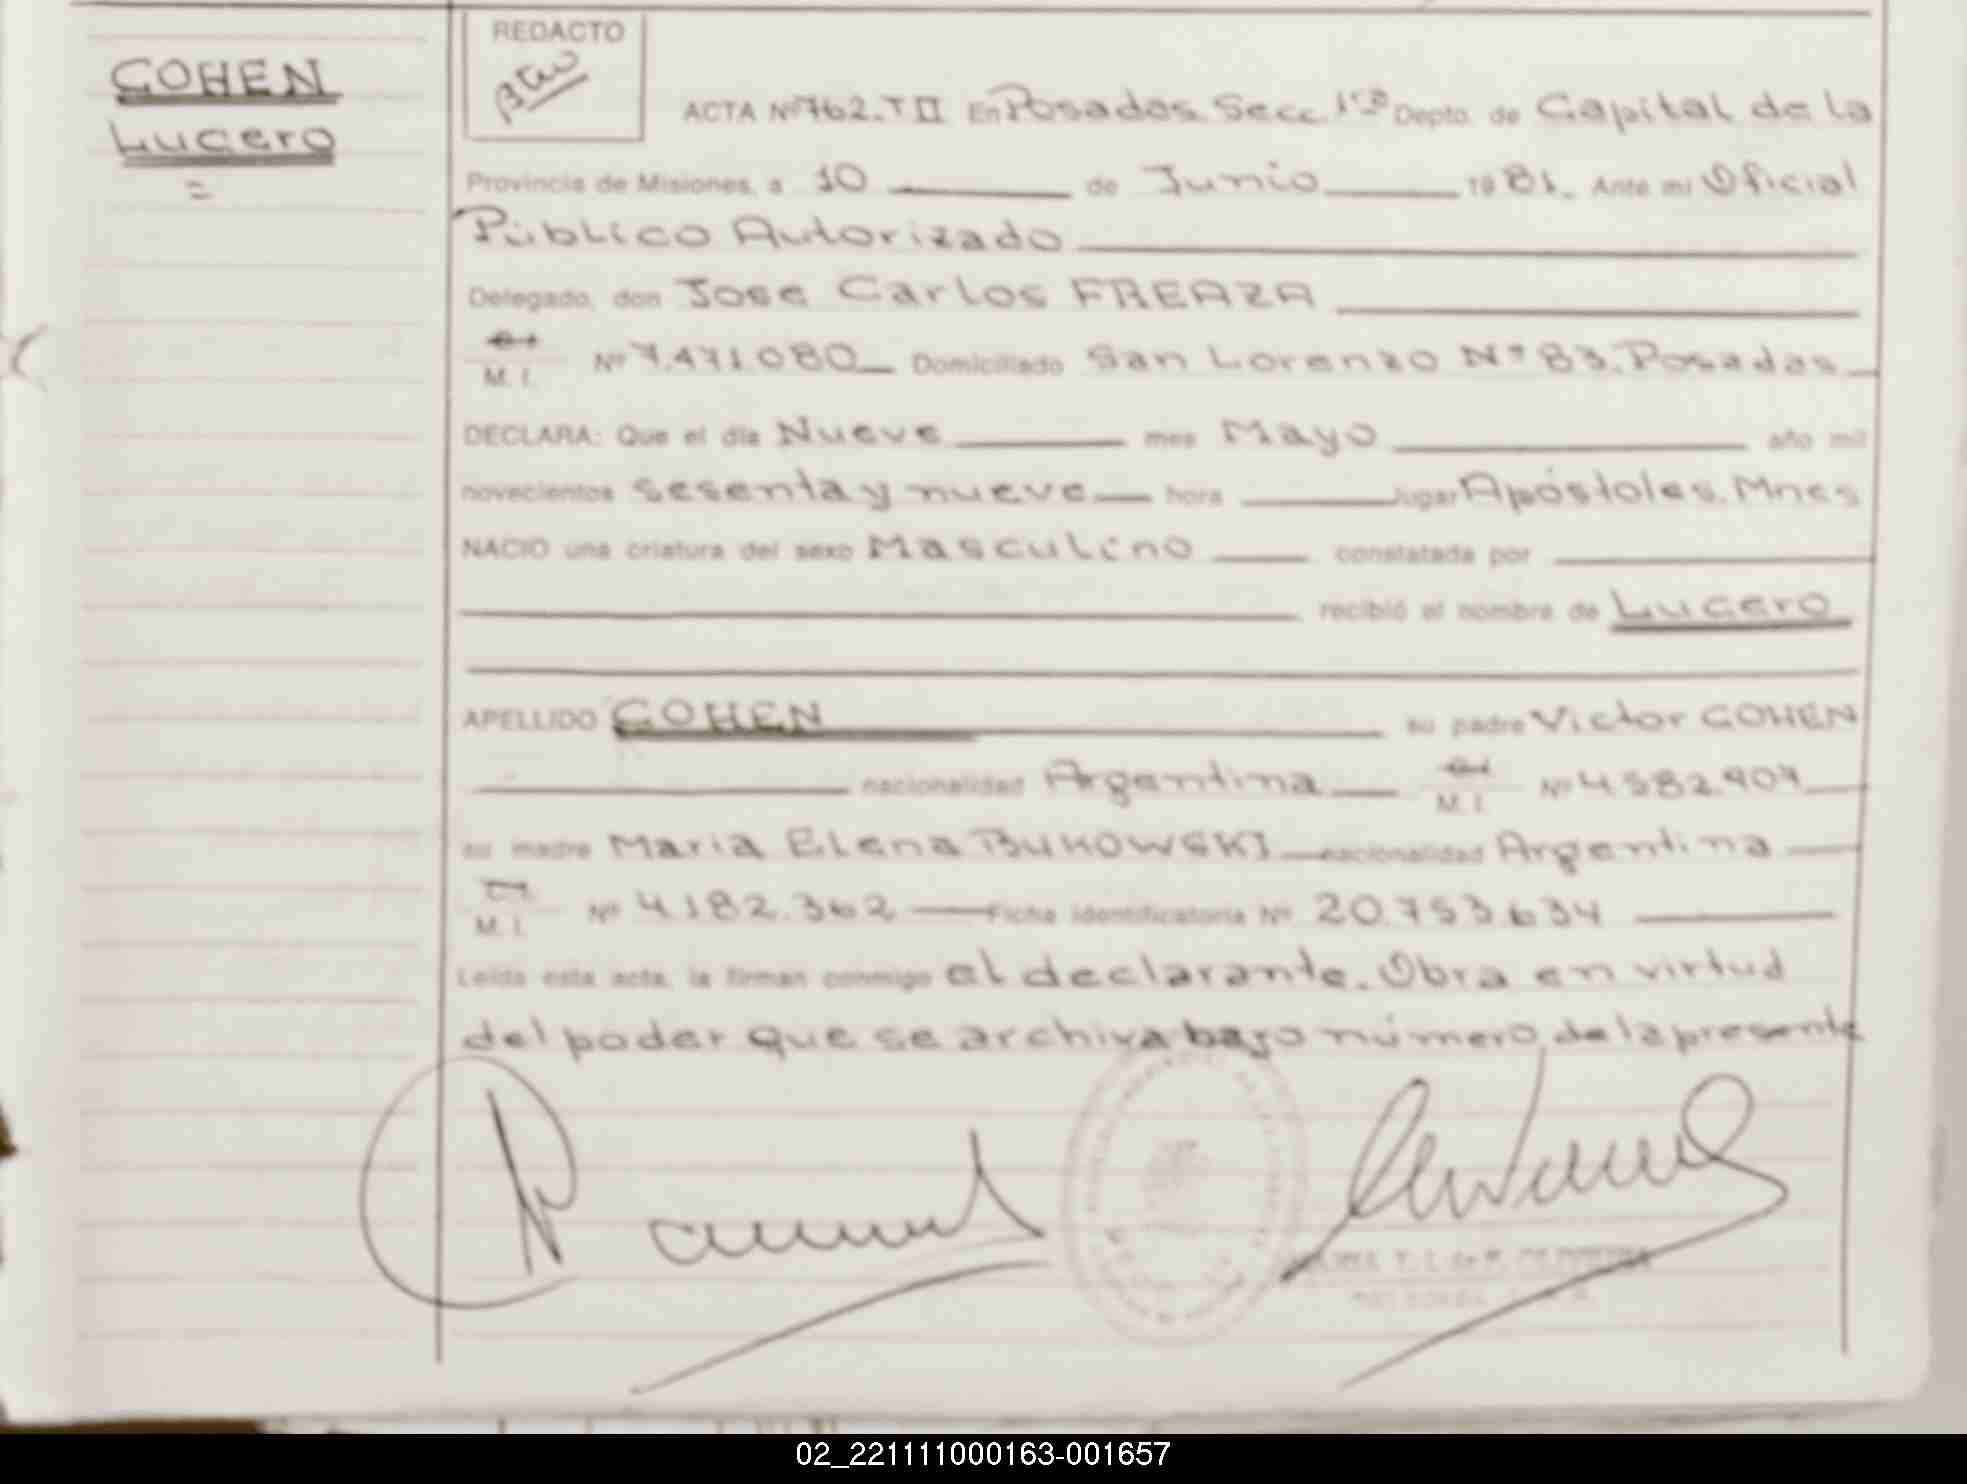 COHEN
Lucero
REDACTO
ACTA Nº 762. T II En Posadas Secc 1ra Depto. de Capital de la
Provincia de Misiones, a 10 de Junio 1981. Ante mi Oficial
Público Autorizado
Delegado, don Jose Carlos FREAZA
M. I. Nº 7.471.080 Domiciliado San Lorenzo Nº 83. Posadas
DECLARA: Que el día Nueve mes Mayo año mil
novecientos sesenta y nueve hora lugar Apóstoles. Mnes
NACIO una criatura del sexo Masculino constatada por
recibió el nombre de Lucero
APELLIDO COHEN su padre Victor COHEN
nacionalidad Argentina M. I. Nº
su madre Maria Elena BUKOWSKI nacionalidad Argentina
M. I. Nº 4.182.362 Ficha identificatoria Nº 20.753.634
Leída esta acta, la firman conmigo el declarante. Obra en virtud
del poder que se archiva bajo número de la presente
02_221111000163-001657